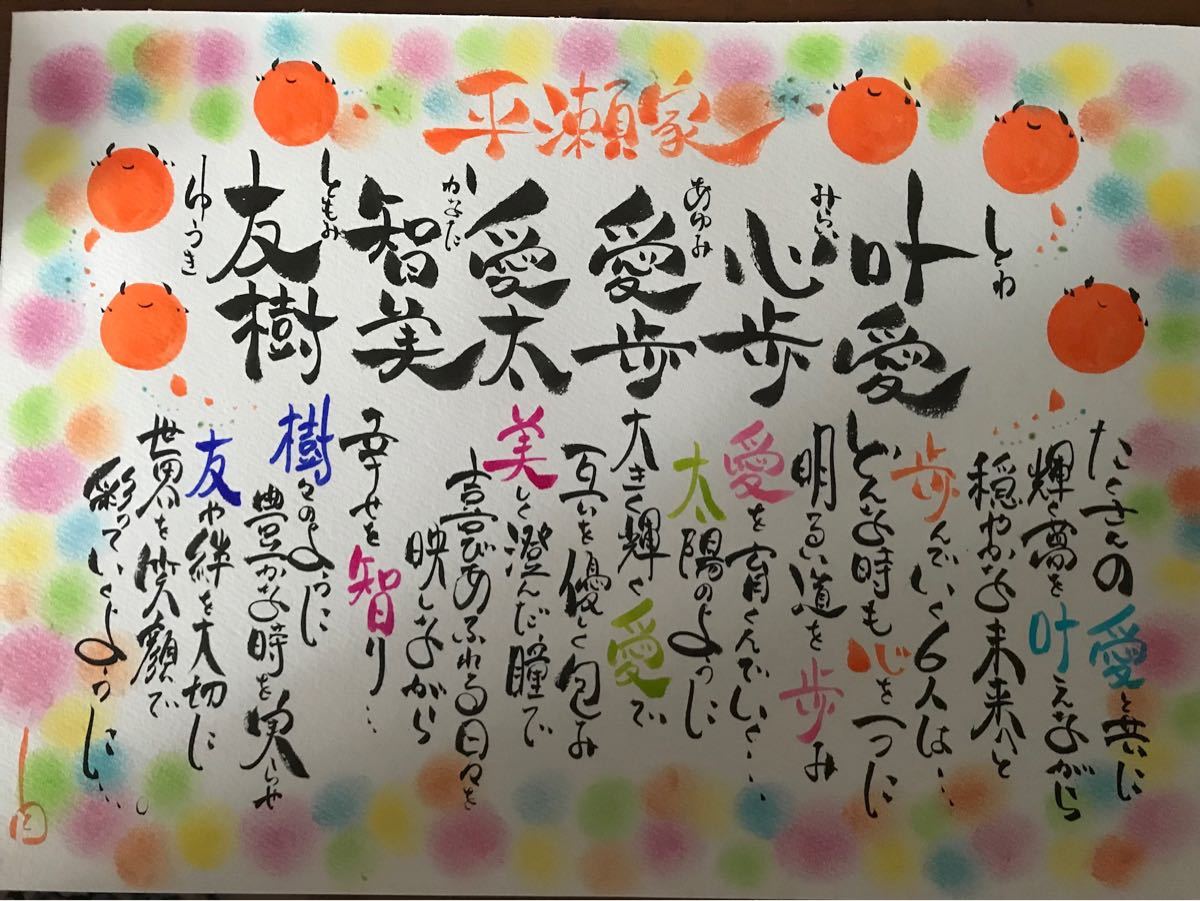 平瀬家
叶愛
とわ
心歩
みらい
愛歩
あゆみ
愛太
かなた
智美
ともみ
友樹
ゆうき
たくさんの愛と共に
輝く夢を叶えながら
穏やかな未来へと
歩んでいく6人は…
どんな時も心を一つに
明るい道を歩み
愛を育くんでいく…
太陽のように
大きく輝く愛で
互いを優しく包み
美しく澄んだ瞳で
喜びあふれる日々を
映しながら
幸せを智り…
樹々のように
豊かな時を実らせ
友や絆を大切に
世界を笑顔で
彩っていくように…。